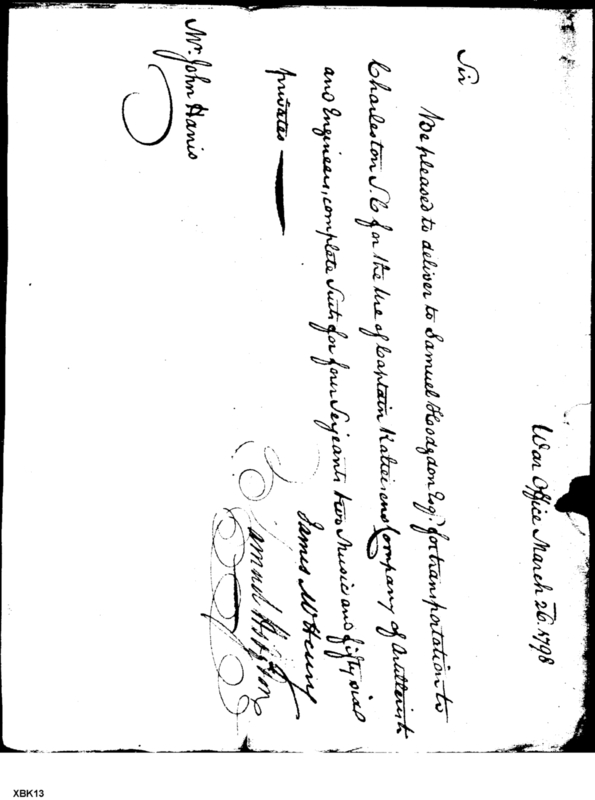 War Office March 26. 1798
Sir
Be pleased to deliver to Samuel Hodgdon Esqr. for transportation to
Charleston S. C for the use of Captain Kalteisens Company of Artillerists
and Engineers, complete suits for four Serjeants two Music and fifty six
privates
James McHenry
Samuel Hodgdon
Mr. John Harris
XBK13